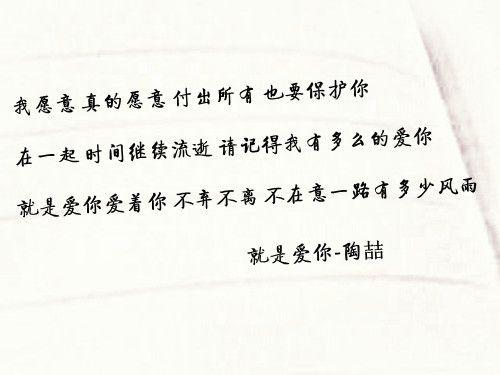 我愿意 真的愿意 付出所有 也要保护你
在一起 时间继续流逝 请记得我有多么的爱你
就是爱你爱着你 不弃不离 不在意一路有多少风雨
就是爱你-陶喆